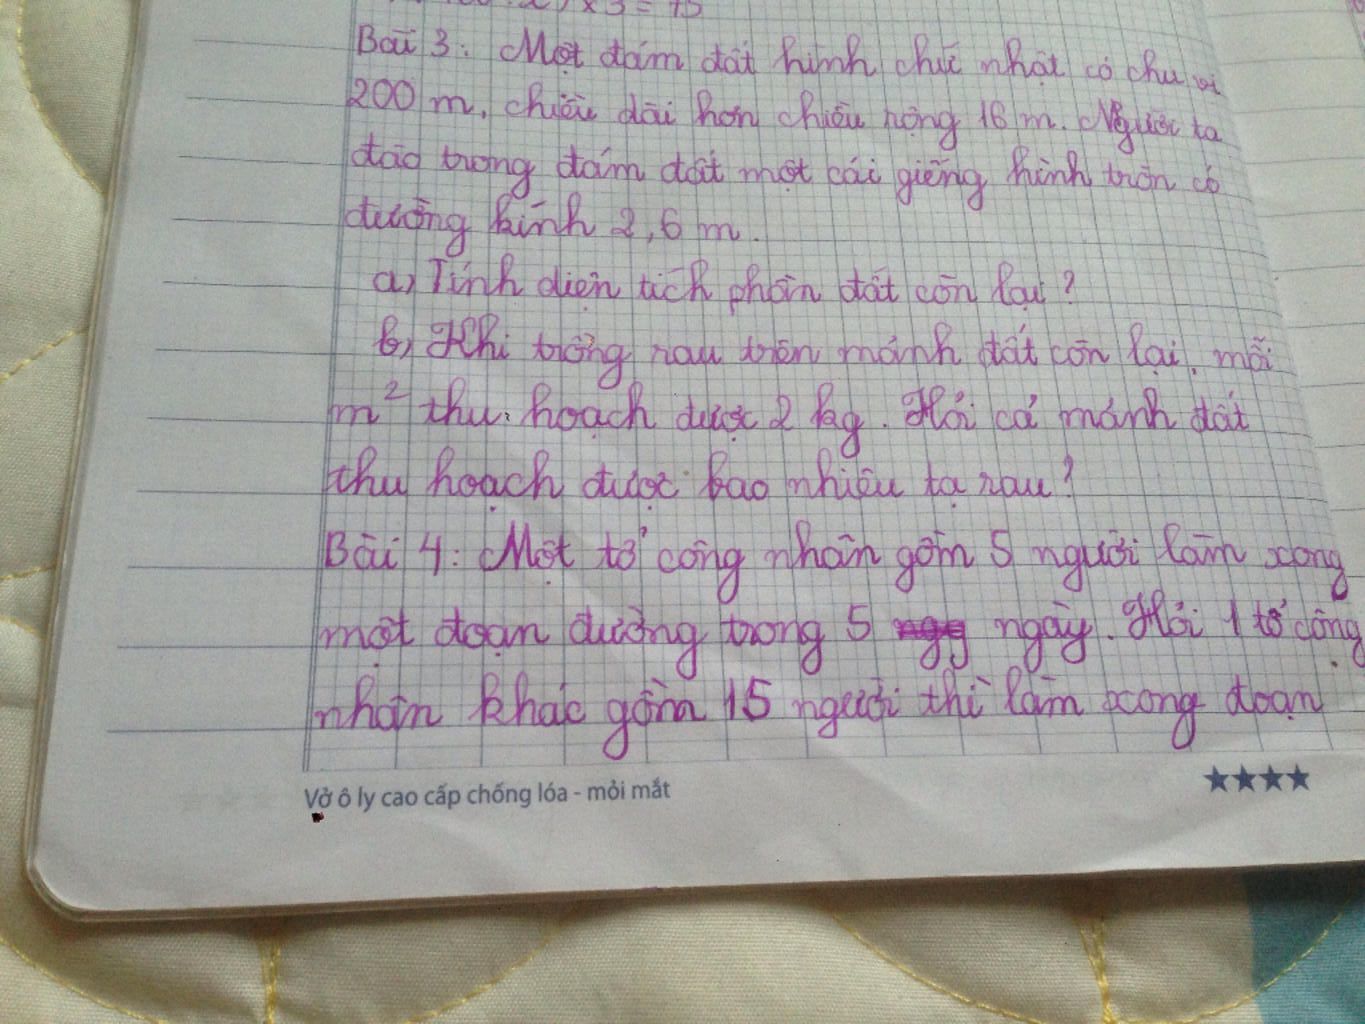 x 3 = 75
Bài 3: Một đám đất hình chữ nhật có chu vi
200 m, chiều dài hơn chiều rộng 16 m. Người ta
đào trong đám đất một cái giếng hình tròn có
đường kính 2,6 m.
a) Tính diện tích phần đất còn lại?
b) Khi trồng rau trên mảnh đất còn lại, mỗi
m² thu hoạch được 2 kg. Hỏi cả mảnh đất
thu hoạch được bao nhiêu tạ rau?
Bài 4: Một tổ công nhân gồm 5 người làm xong
một đoạn đường trong 5 ngày. Hỏi 1 tổ công
nhân khác gồm 15 người thì làm xong đoạn
Vở ô ly cao cấp chống lóa - mỏi mắt